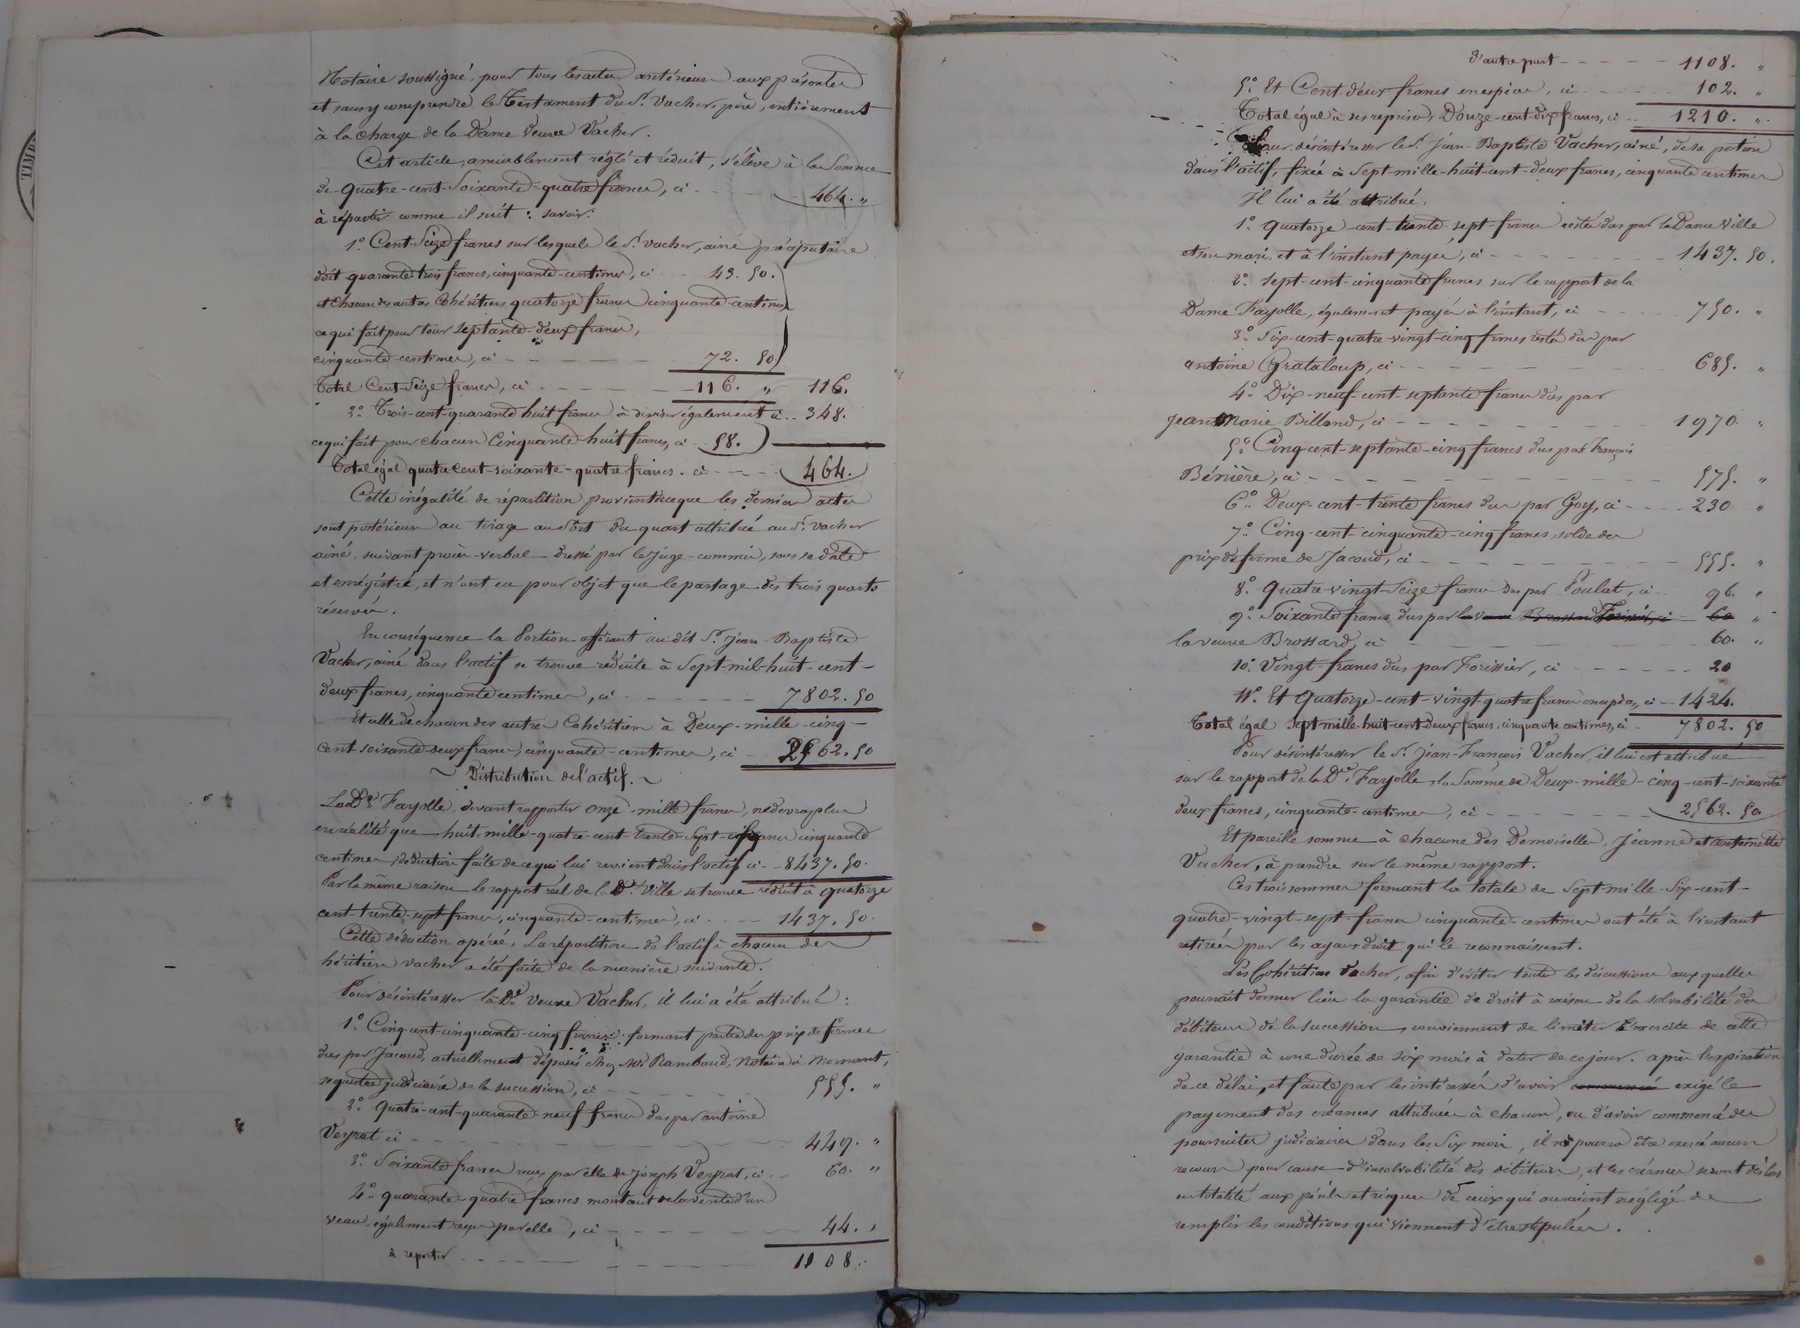 Notaire soussigné, pour tous les actes antérieurs aux présentes
et sans y comprendre le Testament du Sr. Vacher, père, entièrement
à la charge de la Dame veuve Vacher.
Cet article, amiablement réglé et réduit, s'élève à la Somme
de quatre-cent-Soixante-quatre francs, ci 464. "
à répartir comme il suit : savoir:
1° Cent-Seize francs sur lesquels le Sr. vacher, ainé, préciputaire
doit quarante trois francs, cinquante-centimes, ci 43. 50.
et chacun des autres Cohéritiers quatorze francs cinquante centimes
ce qui fait pour tous septante-deux francs,
cinquante-centimes, ci 72. 50
Total Cent-Seize francs, ci 116. " 116.
2° Trois-cent-quarante huit francs à diviser également ci 348.
ce qui fait pour chacun Cinquante-huit francs, ci 58.
Total égal quatre cent-soixante-quatre francs. ci 464.
Cette inégalité de répartition provient de ce que les derniers actes
sont postérieurs au tirage au sort du quart attribué au Sr. vacher
ainé, suivant procès-verbal dressé par le Juge-commis, sous sa date
et enrégistré, et n'ont eu pour objet que le partage des trois quarts
réservés.
En conséquence la Portion afférant au dit Sr. Jean-Baptiste
Vacher, ainé dans l'actif se trouve réduite à Sept-mil-huit-cent-
deux francs, cinquante centimes, ci 7802. 50
Et celle de chacun des autres Cohéritiers à Deux-mille-cinq-
cent soixante deux francs, cinquante-centimes, ci 2562. 50
~ Distribution de l'actif. ~
La De. Fayolle, devant rapporter onze-mille francs, ne devra plus
en réalité que huit-mille-quatre-cent-trente-Sept-francs cinquante
centimes, déduction faite de ce qui lui revient dans l'actif ci 8437. 50.
Par la même raison le rapport réel de la De. Ville se trouve réduit à quatorze
cent-trente-sept francs, cinquante-centimes, ci 1437. 50.
Cette déduction opérée, La répartition de l'actif à chacun des
héritiers vacher a été faite de la manière suivante.
Pour désintéresser la De. Veuve Vacher, il lui a été attribué :
1° Cinq-cent-cinquante-cinq francs, formant partie des prix de ferme
dus par Jacoud, actuellement déposés chez Me. Rambaud, Notaire à Mornant,
sequestre judiciaire de la succession, ci 555. "
2° Quatre-cent-quarante-neuf francs dus par antoine
Veyrat ci 449. "
3° Soixante francs reçus par elle de Joseph Veyrat, ci 60. "
4° quarante-quatre francs montant de la vente d'un
veau, également reçus par elle, ci 44. "
à reporter 1108.
d'autre part 1108. "
5° Et Cent deux francs en espèces, ci 102. "
Total égal à ses reprises, Douze-cent-dix francs, ci 1210. "
Pour désintéresser le Sr. Jean-Baptiste Vacher, ainé, de sa portion
dans l'actif, fixée à Sept-mille-huit-cent-deux francs, cinquante centimes
Il lui a été attribué.
1° quatorze-cent trente sept-francs restés dus par la Dame Ville
et son mari, et à l'instant payés, ci 1437. 50.
2° Sept-cent-cinquante francs sur le rapport de la
Dame Fayolle, également payés à l'instant, ci 750. "
3° Six-cent-quatre-vingt-cinq francs restés dus par
antoine Grataloup, ci 685. "
4° Dix-neuf-cent-septante francs dus par
Jean Marie Billand, ci 1970. "
5° Cinq-cent-septante-cinq francs dus par François
Bénière, ci 575. "
6° Deux-cent-trente francs dus par Goy, ci 230. "
7° Cinq-cent cinquante-cinq francs, solde des
prix de ferme de Jacoud, ci 555. "
8° quatre vingt-Seize francs dus par Poulat, ci 96. "
9° Soixante francs dus par la veuve Brossard Forissier, ci 60 "
la veuve Brossard, ci 60. "
10° Vingt-francs dus par Forissier, ci 20
11° Et Quatorze-cent-vingt-quatre francs en espèces, ci 1424.
Total égal Sept-mille-huit-cent-deux francs, cinquante centimes, ci 7802. 50
Pour désintéresser le Sr. Jean-François Vacher, il lui est attribué
sur le rapport de la De. Fayolle, la Somme de Deux-mille-cinq-cent-soixante
deux francs, cinquante-centimes, ci 2562. 50.
Et pareille somme à chacune des Demoiselles Jeanne et antoinette
Vacher, à prendre sur le même rapport.
Ces trois sommes formant la totale de Sept-mille-Six-cent-
quatre-vingt-sept francs cinquante-centimes ont été à l'instant
retirées par les ayans droit qui le reconnaissent.
Les Cohéritiers Vacher, afin d'éviter toutes les discussions aux quelles
pourrait donner lieu la garantie de droit à raison de la solvabilité des
débiteurs de la succession, conviennent de limiter l'exercice de cette
garantie à une durée de six mois à dater de ce jour. après l'expiration
de ce délai, et faute par les intéressés d'avoir commencé exigé le
payement des créances attribuées à chacun, ou d'avoir commencé des
poursuites judiciaires dans les Six mois, il ne pourra être exercé aucun
recours pour cause d'insolvabilité des débiteurs, et les créances seront dès lors
en totalité aux périls et risques de ceux qui auraient négligé de
remplir les conditions qui viennent d'être stipulées.